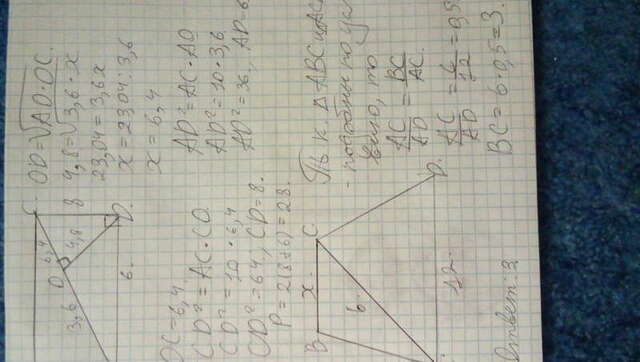 C.
O
6,4
3,6
4,8
8
6.
D.
OD=√AO·OC.
4,8=√3,6·x
23,04=3,6x
x=23,04:3,6
x=6,4
OC=6,4.
CD²=AC·CO
CD²=10·6,4
CD²=64, CD=8.
P=2(8+6)=28.
AD²=AC·AO
AD²=10·3,6
AD²=36, AD=6
B
x.
C.
6.
12.
D.
Т.к. △ABC и AC
- подобны по усл
вию, то
AC/AD = BC/AC.
AC/AD = 6/12 = 0,5
BC=6·0,5=3.
Ответ: 3